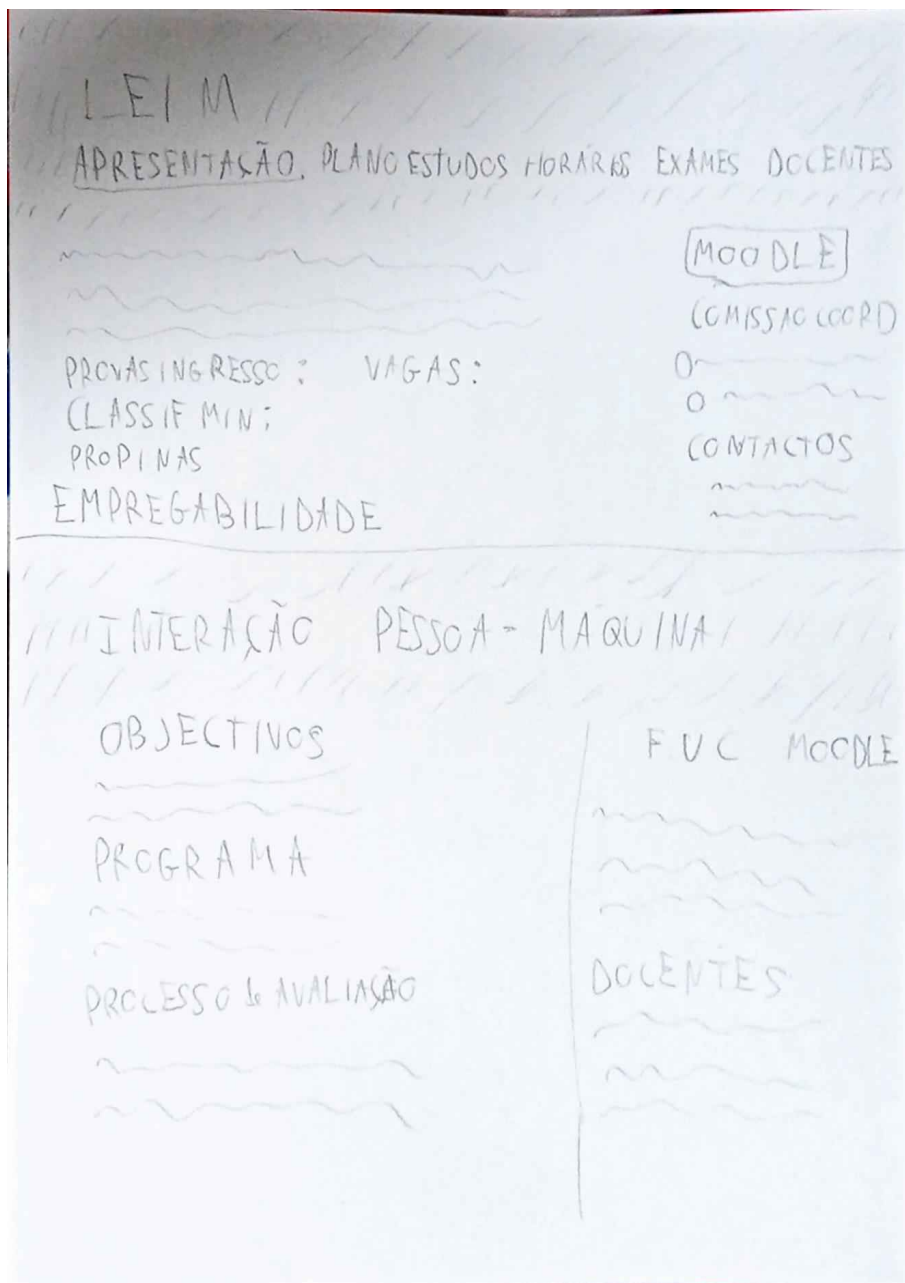 LEIM
APRESENTAÇÃO PLANO ESTUDOS HORÁRIOS EXAMES DOCENTES
MOODLE
COMISSAO COORD
PROVAS INGRESSO: VAGAS:
CLASSIF MIN:
PROPINAS
CONTACTOS
EMPREGABILIDADE
INTERAÇÃO PESSOA-MAQUINA
OBJECTIVOS
PROGRAMA
PROCESSO de AVALIAÇÃO
FUC MOODLE
DOCENTES